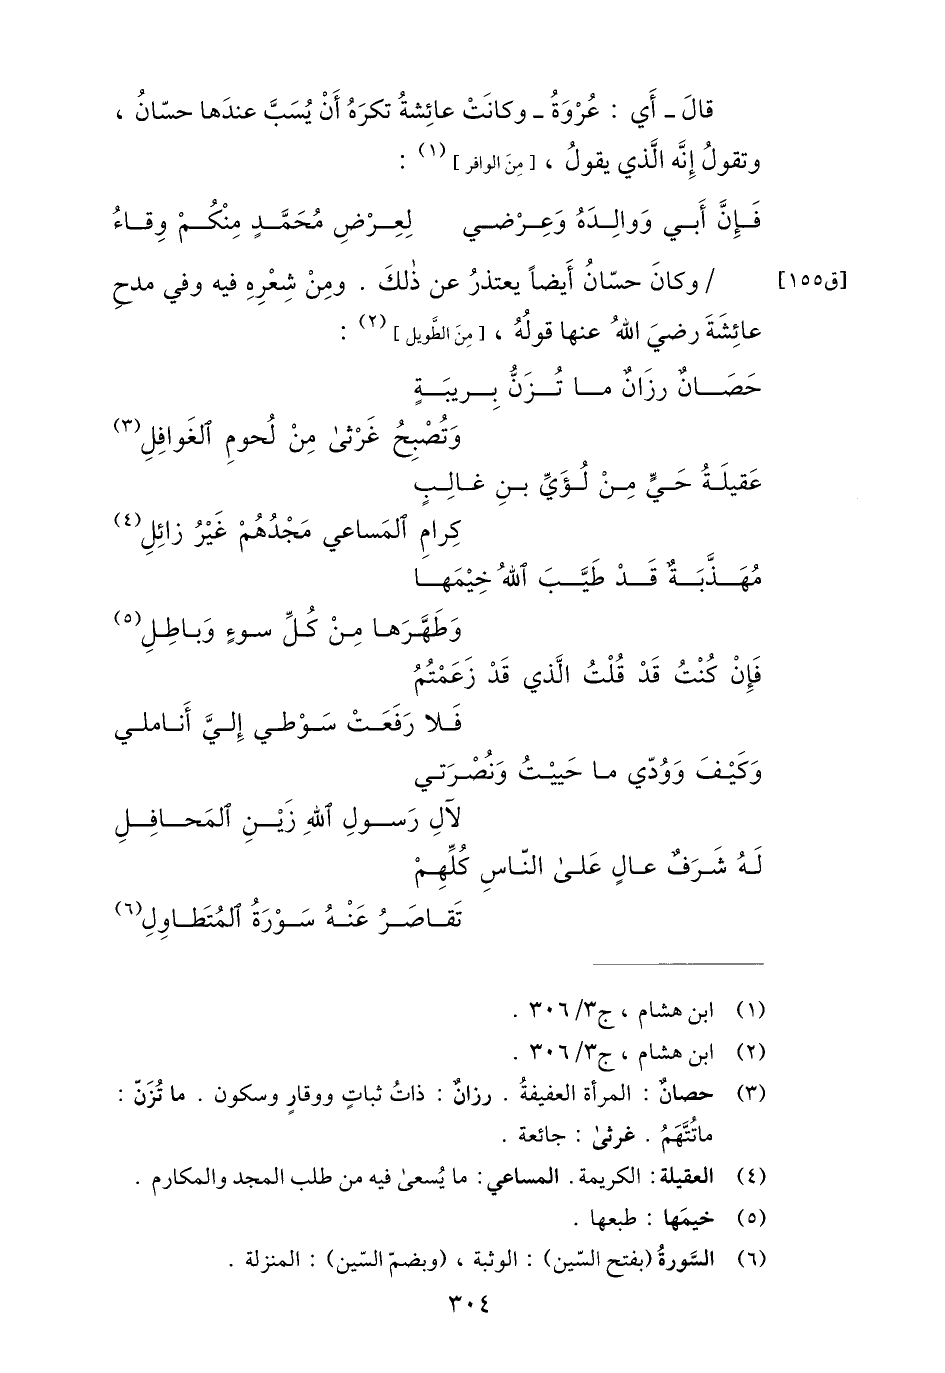 قالَ ـ أَي : عُرْوَةُ ـ وكانَتْ عائِشةُ تكرَهُ أَنْ يُسَبَّ عندَها حسّانُ ،
وتقولُ إِنَّه الَّذي يقولُ ، [ مِنَ الوافر ] (١) :
فَإِنَّ أَبي وَوالِدَهُ وَعِرْضي لِعِرْضِ مُحَمَّدٍ مِنْكُمْ وِقاءُ
[ق١٥٥] / وكانَ حسّانُ أَيضاً يعتذرُ عن ذٰلكَ . ومِنْ شِعْرِهِ فيه وفي مدحِ
عائِشَةَ رضيَ اللهُ عنها قولُهُ ، [ مِنَ الطَّويل ] (٢) :
حَصَانٌ رزَانٌ ما تُزَنُّ بِريبَةٍ
وَتُصْبِحُ غَرْثىٰ مِنْ لُحومِ ٱلغَوافِلِ(٣)
عَقيلَةُ حَيٍّ مِنْ لُؤَيِّ بنِ غالِبٍ
كِرامِ ٱلمَساعي مَجْدُهُمْ غَيْرُ زائِلِ(٤)
مُهَذَّبَةٌ قَدْ طَيَّبَ ٱللهُ خِيْمَها
وَطَهَّرَها مِنْ كُلِّ سوءٍ وَباطِلِ(٥)
فَإِنْ كُنْتُ قَدْ قُلْتُ الَّذي قَدْ زَعَمْتُمُ
فَلا رَفَعَتْ سَوْطي إِليَّ أَناملي
وَكَيْفَ وَوُدّي ما حَيِيْتُ وَنُصْرَتي
لآلِ رَسولِ ٱللهِ زَيْنِ ٱلمَحافِلِ
لَهُ شَرَفٌ عالٍ عَلىٰ النّاسِ كُلِّهِمْ
تَقاصَرُ عَنْهُ سَوْرَةُ ٱلمُتَطاوِلِ(٦)
(١) ابن هشام ، ج٣/ ٣٠٦ .
(٢) ابن هشام ، ج٣/ ٣٠٦ .
(٣) حصانٌ : المرأة العفيفةُ . رزانٌ : ذاتُ ثباتٍ ووقارٍ وسكون . ما تُزَنّ :
ماتُتَّهَمُ . غرثىٰ : جائعة .
(٤) العقيلة : الكريمة . المساعي : ما يُسعىٰ فيه من طلب المجد والمكارم .
(٥) خيمَها : طبعها .
(٦) السَّورةُ (بفتح السّين) : الوثبة ، (وبضمّ السّين) : المنزلة .
٣٠٤